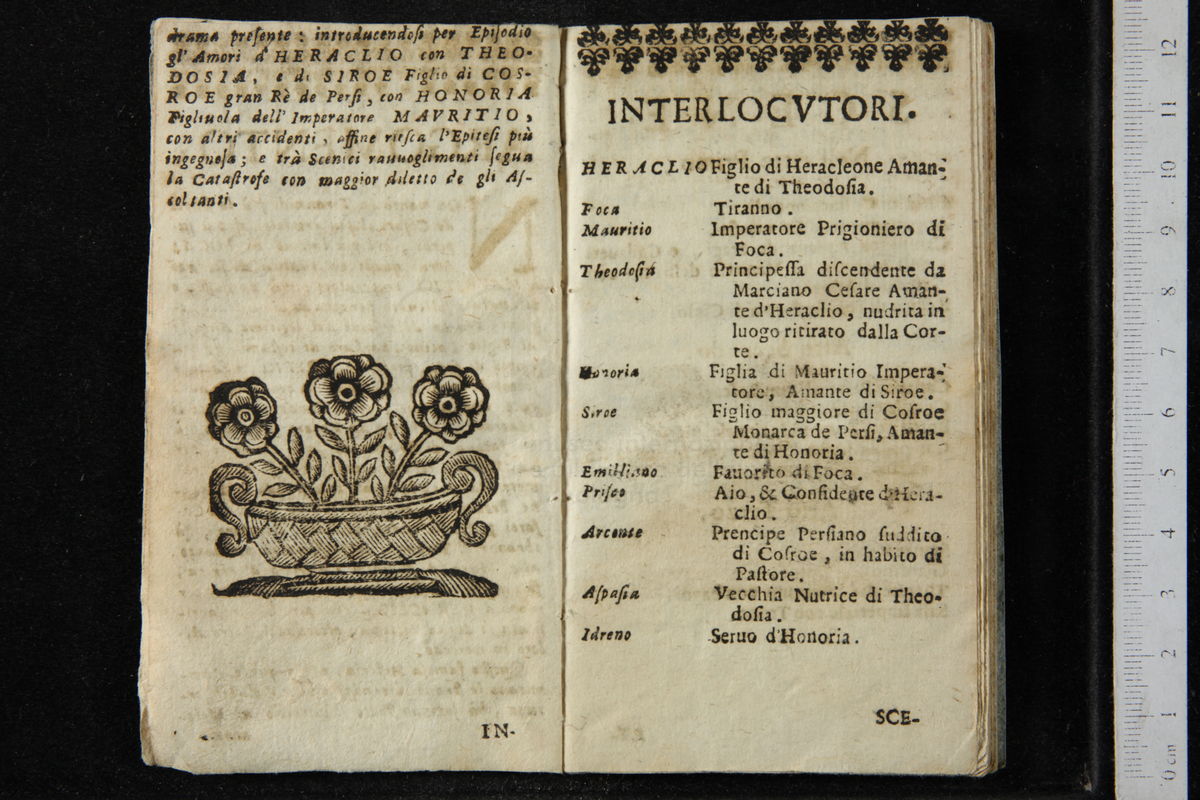 drama presente: introducendosi per Episodio
gl'Amori d'HERACLIO con THEO-
DOSIA, e di SIROE Figlio di COS-
ROE gran Rè de Persi, con HONORIA
Figliuola dell'Imperatore MAVRITIO,
con altri accidenti, affine riesca l'Epitesi più
ingegnosa; e trà Scenici rauuoglimenti segua
la Catastrofe con maggior diletto de gli As-
coltanti.
IN-
INTERLOCVTORI.
HERACLIO Figlio di Heracleone Aman-
te di Theodosia.
Foca Tiranno.
Mauritio Imperatore Prigioniero di
Foca.
Theodosia Principessa discendente da
Marciano Cesare Aman-
te d'Heraclio, nudrita in
luogo ritirato dalla Cor-
te.
Honoria Figlia di Mauritio Impera-
tore, Amante di Siroe.
Siroe Figlio maggiore di Cosroe
Monarca de Persi, Aman-
te di Honoria.
Emilliano Fauorito di Foca.
Prisco Aio, & Confidente d'Hera-
clio.
Arconte Prencipe Persiano suddito
di Cosroe, in habito di
Pastore.
Aspasia Vecchia Nutrice di Theo-
dosia.
Idreno Seruo d'Honoria.
SCE-
12
11
10
9
8
7
6
5
4
3
2
1
0 cm